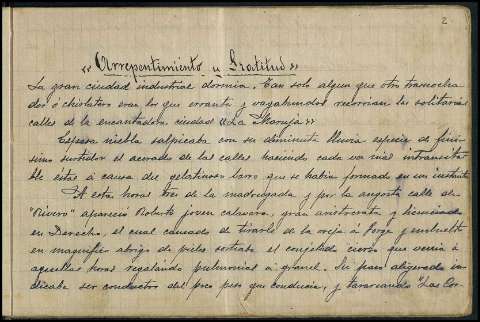 2
"Arrepentimiento y Gratitud"
La gran ciudad industrial dormia. Tan solo algun que otro trasnocha
dor ó chislatero eran los que errante y vagabundos recorrian las solitarias
calles de la encantadora ciudad "La Maruja"
Espesa niebla salpicaba con su diminuta lluvia especie de finí-
simo surtidor el acerado de las calles haciendo cada vez mas intransita-
ble estas á causa del gelatinoso barro que se habia formado en un instante
A esta hora tres de la madrugada y por la angosta calle de
"Rivero" apareció Roberto joven calavera, gran aristocrata y licenciado
en Derecho, el cual cansado de tirarle de la oreja á Jorge y envuelto
en magnifico abrigo de pieles sorteaba el congelado cierzo que venia á
aquellas horas regalando pulmonias á granel. Su paso aligerado in-
dicaba ser conductor del poco peso que conducia, y tarareando "Las Cor-